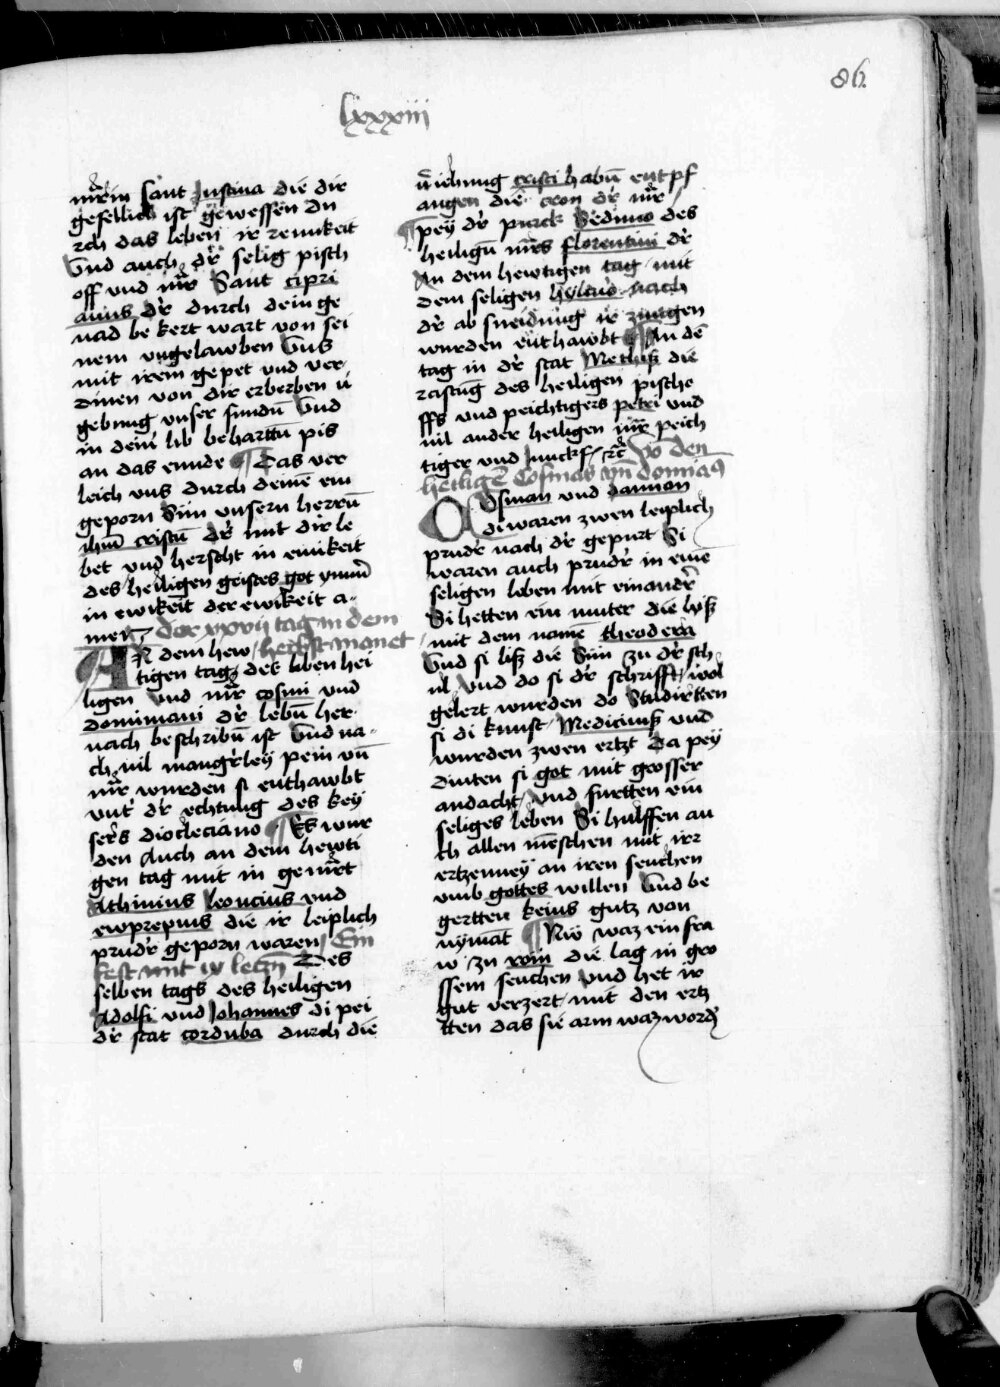 86
lxxxiii
mr̄in sant Justina die dir
gefellich ist gewessen du
rch das leben ir reinikeit
Vnd auch dr̄ selig pisch
off vnd mr̄ Sant cipri
anus dr̄ durch dein ge
nad be kert wart von sei
nem vngelawben Vns
mit irem gepet vnd ver
dinen von dir erberben ū
gebung vnser sundn̄ Vnd
in deim lib beharttn̄ pis
an das ennde ¶ Das ver
leich vns durch deinē ein
geporn Sun vnsern herrn̄
ihm̄ cristū dr̄ mit dir le
bet vnd herscht in einikeit
des heiligen geistes got ymm̄
in ewikeit der ewikeit a-
men der xxvii tag in dem
AN dem hew herbstmonet
tigen tag des liben hei
ligen vnd mr̄r cosmi vnd
domimani dr̄ lebn̄ her
nach beschribn̄ ist Vnd na-
ch vil mangr̄ley pein vn̄
mr̄r wurden si enthawbt
vnt̄ dr̄ echtung des key
sers diocleciano ¶ Es wur
den Auch an dem hewti
gen tag mit in gemr̄t
Athimus leoncius vnd
ewprepius die ir leiplich
prudr̄ geporn waren Ein
fest mit ix leczn̄ Des
selben tags des heiligen
Adolfi vnd Johannes di pei
dr̄ stat corduba durch die
v̄iehung cristi habn̄ entpf
angen die cron dr̄ mr̄r
¶ pey dr̄ purck Seduno des
heilign̄ mr̄rs florentini dr̄
An dem hewtigen tag mit
dem seligen hylario nach
dr̄ ab sneidung ir zungen
wurden enthawbt ¶ An dē
tag in dr̄ stat die
rastūg des heiligen pische
ffs vnd peichtigers petri vnd
vil ander heiligen mr̄r peich
tiger vnd Junckf rc̄ Vō den
heiligē Cosmas vn̄ domias
COsman vnd damian
di waren zwen leiplich
prudr̄ nach dr̄ gepurt Si
waren auch prudr̄ in einē
seligen leben mit einandr̄
Si hetten ein muter die hyß
mit dem namē theodera
Vnd si liß die Sun zu dr̄ sch
ul Vnd do si dr̄ schrifft wol
gelert wurden do Studirtten
si di kunst Medicinis vnd
wurden zwen ertzt Da pey
dinten si got mit grosser
andacht Vnd furtten ein
seliges leben Si hulffen au
ch allen mēschen mit irr
ertzenney an iren seuchen
vmb gottes willen Vnd be
gertten keins gutz von
nymāt ¶ Nw waz ein fra
w zu rom die lag in gro
ssem seuchen Vnd het ir
gut verzert mit den ertz
tten das sie arm waz wordn̄